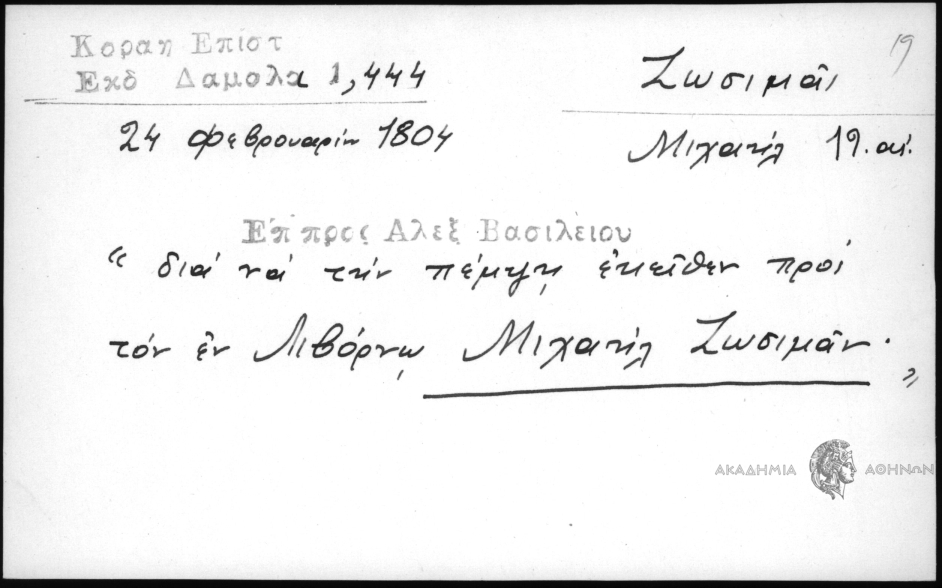 Κοραη Επιστ
Εκδ Δαμαλα 1,444
24 Φεβρουαρίυ 1804
19
Ζωσιμᾶς
Μιχαήλ 19. αἰ.
Επ προς Αλεξ Βασιλειου
“ διά νά τήν πέμψῃ ἐκεῖθεν πρός
τόν ἐν Λιβόρνῳ Μιχαήλ Ζωσιμᾶν. ”
ΑΚΑΔΗΜΙΑ ΑΘΗΝΩΝ